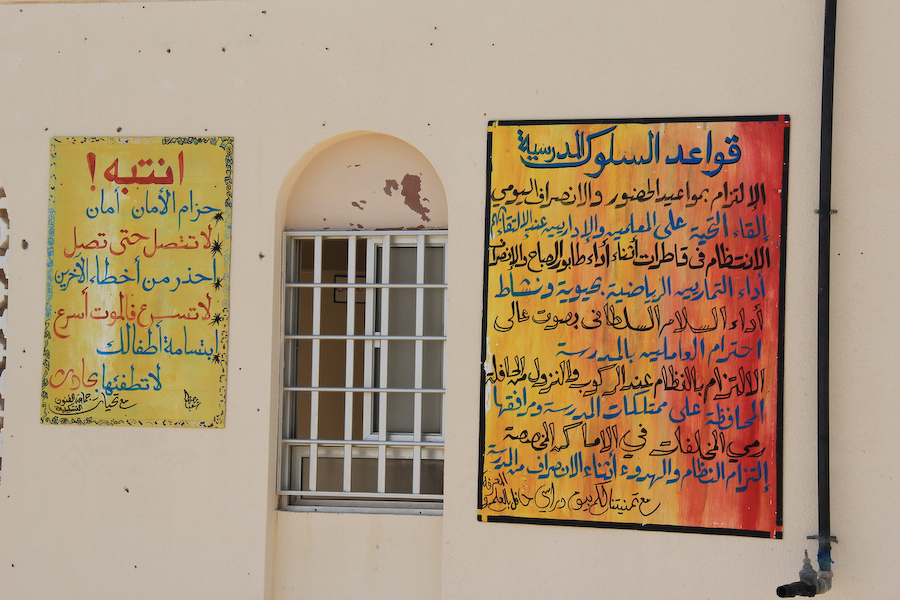 انتبه !
حزام الأمان أمان
لا تتصل حتى تصل
احذر من أخطاء الآخرين
لا تسرع فالموت أسرع
ابتسامة أطفالك
لا تطفئها
مع تحيات جماعة الفنون التشكيلية
قواعد السلوك المدرسية
الإلتزام بمواعيد الحضور والانصراف اليومي
إلقاء التحية على المعلمين والإداريين عند الالتقاء بهم
الانتظام في قاطرات أثناء أداء طابور الصباح والإنصراف
أداء التمارين الرياضية بحيوية ونشاط
أداء السلام السلطاني بصوت عالي
احترام العاملين بالمدرسة
الالتزام بالنظام عند الركوب والنزول من الحافلة
المحافظة على ممتلكات المدرسة ومرافقها
رمي المخلفات في الأماكن المخصصة
إلتزام النظام والهدوء أثناء الانصراف من المدرسة
مع تمنيتنا لكم بيوم دراسي حافل بالعلم و المعرفة